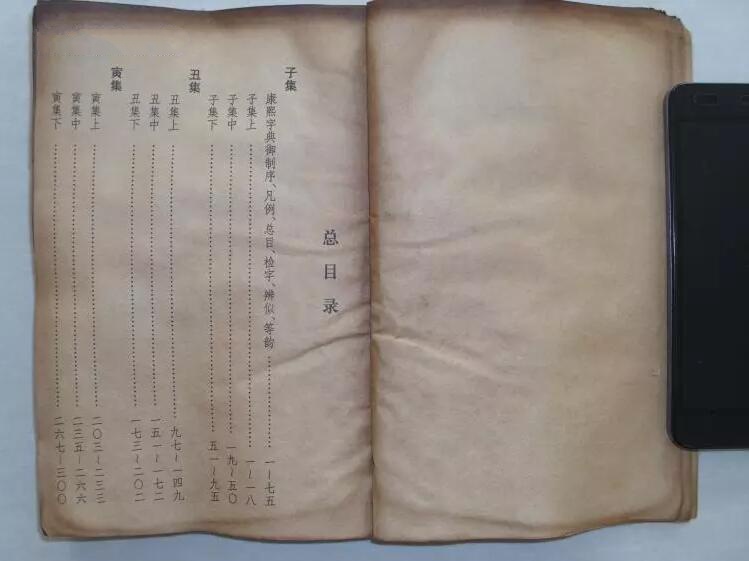 总目录
子集
康熙字典御制序、凡例、总目、检字、辨似、等韵……一~七五
子集上……一~一八
子集中……一九~五〇
子集下……五一~九五
丑集
丑集上……九七~一四九
丑集中……一五一~一七二
丑集下……一七三~二〇二
寅集
寅集上……二〇三~二三三
寅集中……二三五~二六六
寅集下……二六七~三〇〇